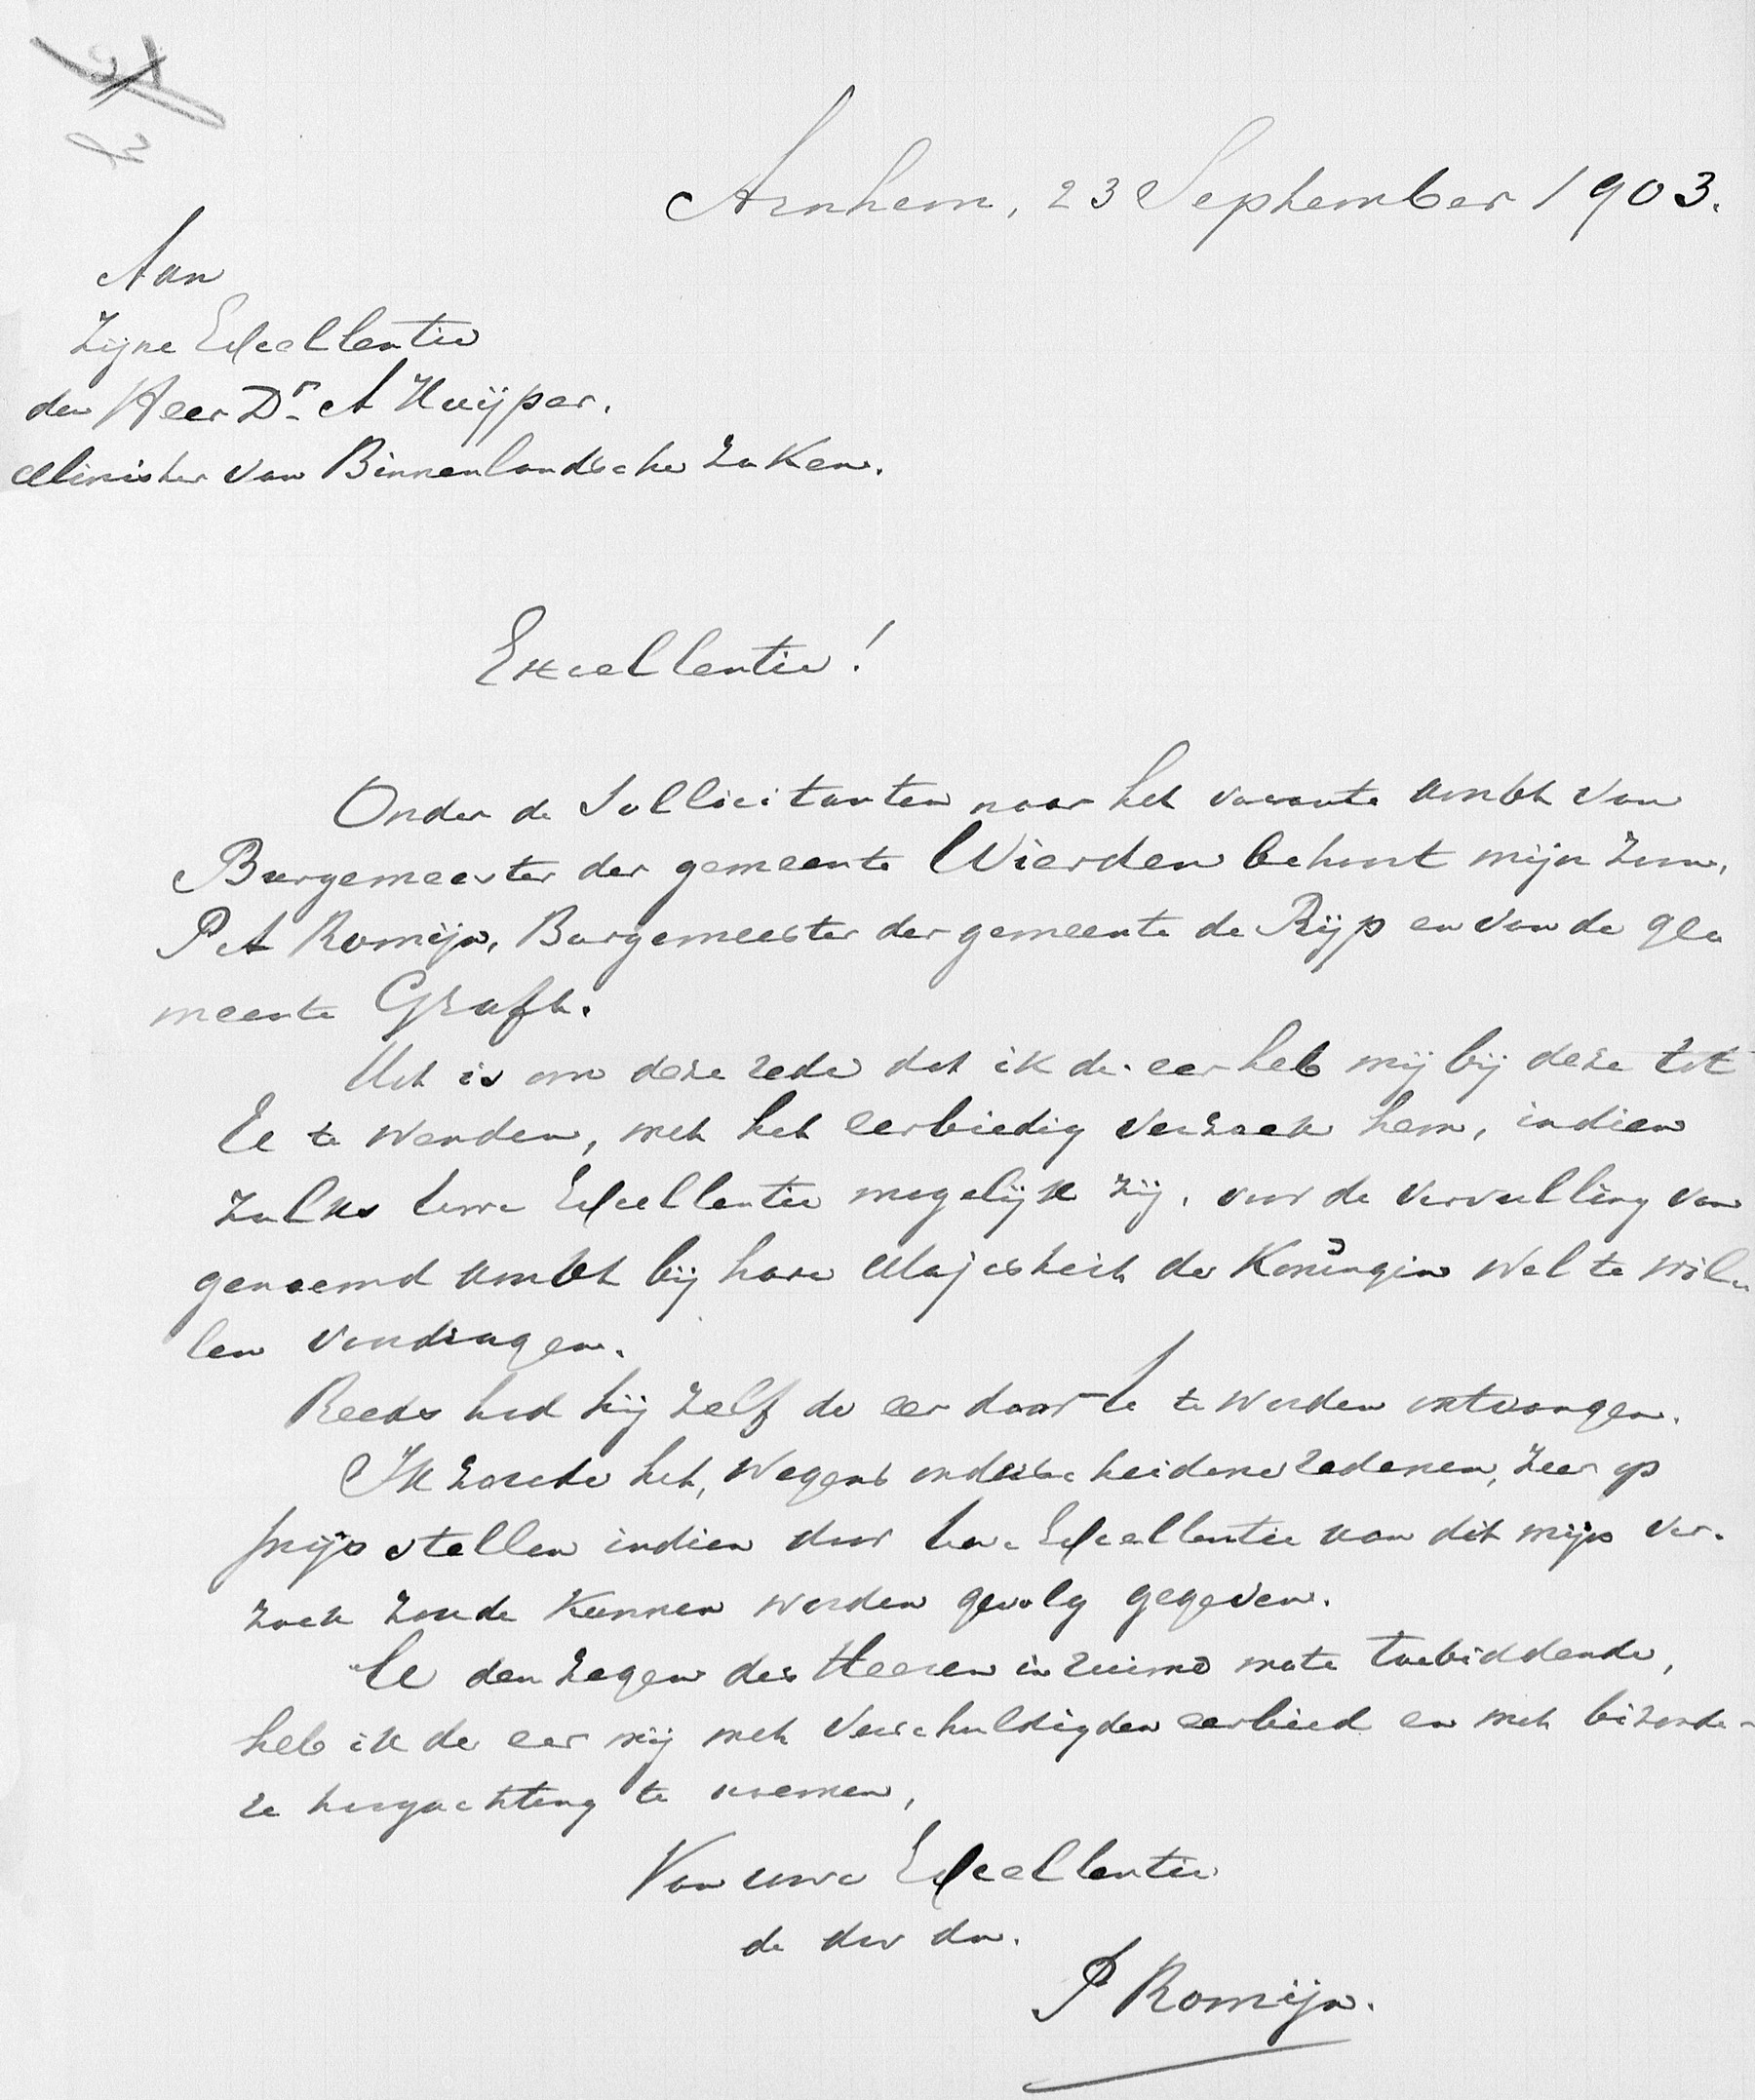 Arnhem, 23 September 1903.
Aan
Zijne Excellentie
den Heer Dr. A Kuijper.
Minister van Binnenlandsche Zaken.
Excellentie!
Onder de Sollicitanten naar het vacante ambt van
Burgemeester der gemeente Wierden behoort mijn zoon,
P A Romijn, Burgemeester der gemeente de Rijp en van de ge-
meente Graft.
Het is om deze rede dat ik de eer heb mij bij deze tot
U te wenden, met het eerbiedig verzoek hem, indien
zulks Uwe Excellentie mogelijk zij, voor de vervulling van
genoemd ambt bij hare Majesteit de Koningin wel te wil-
len voordragen.
Reeds had hij zelf de eer door U te worden ontvangen.
Ik zoude het, wegens onderscheidene redenen, zeer op
prijs stellen indien door Uwe Excellentie aan dit mijn ver-
zoek zoude kunnen worden gevolg gegeven.
U den Zegen des Heeren in ruime mate toebiddende,
heb ik de eer mij met verschuldigden eerbied en met bizonde-
re hoogachting te noemen,
Van uwe Excellentie
de dw dn.
P Romijn.